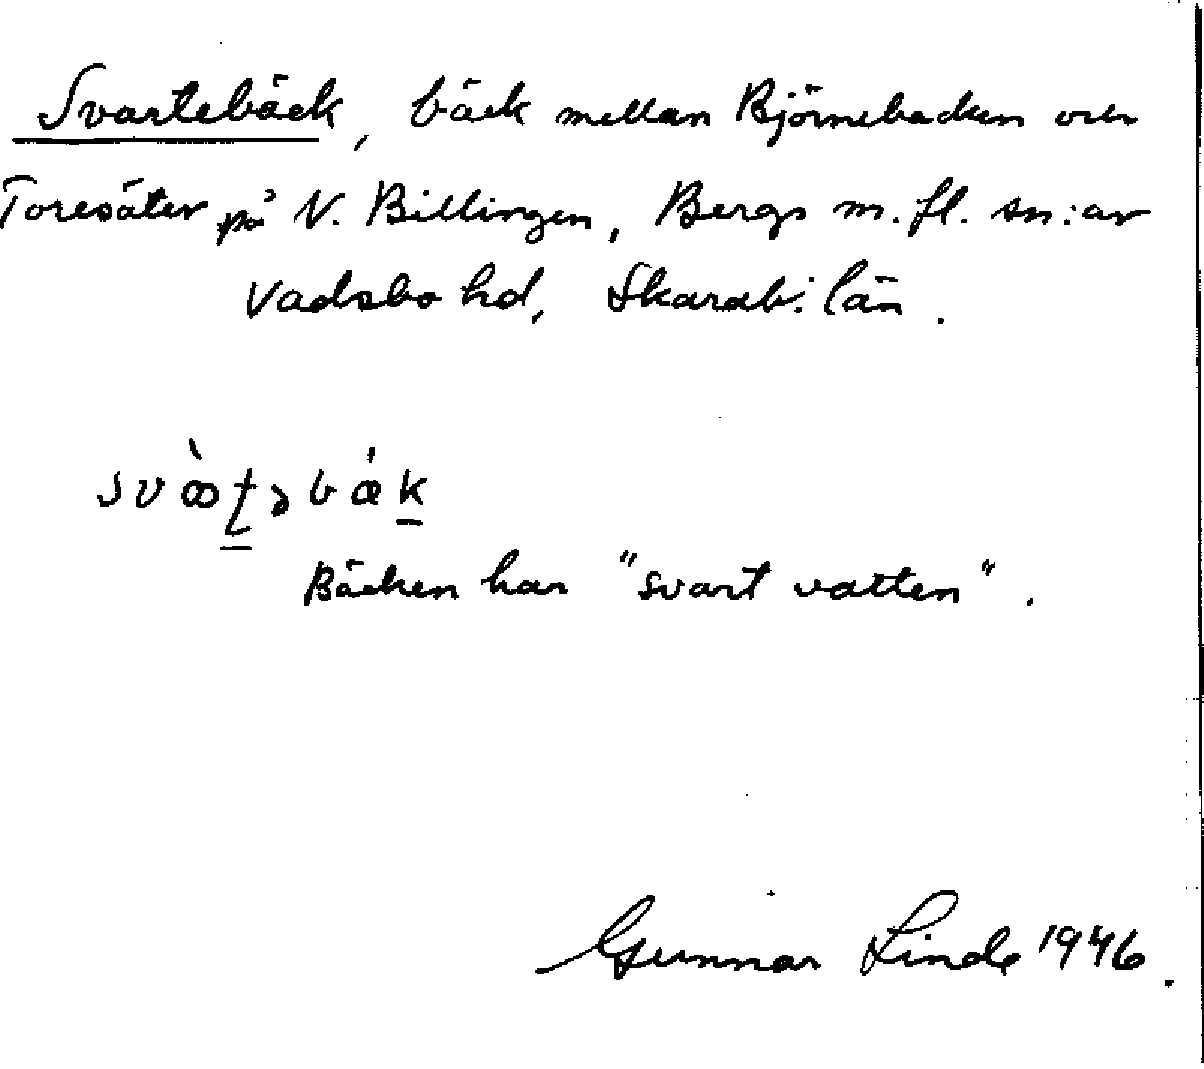 Svartebäck, bäck mellan Björnebacken och
Toresäter på N. Billingen, Bergs m.fl. sn:ar
Vadsbo hd, Skarab. län.
Bäcken har "svart vatten".
Gunnar Linde 1946.